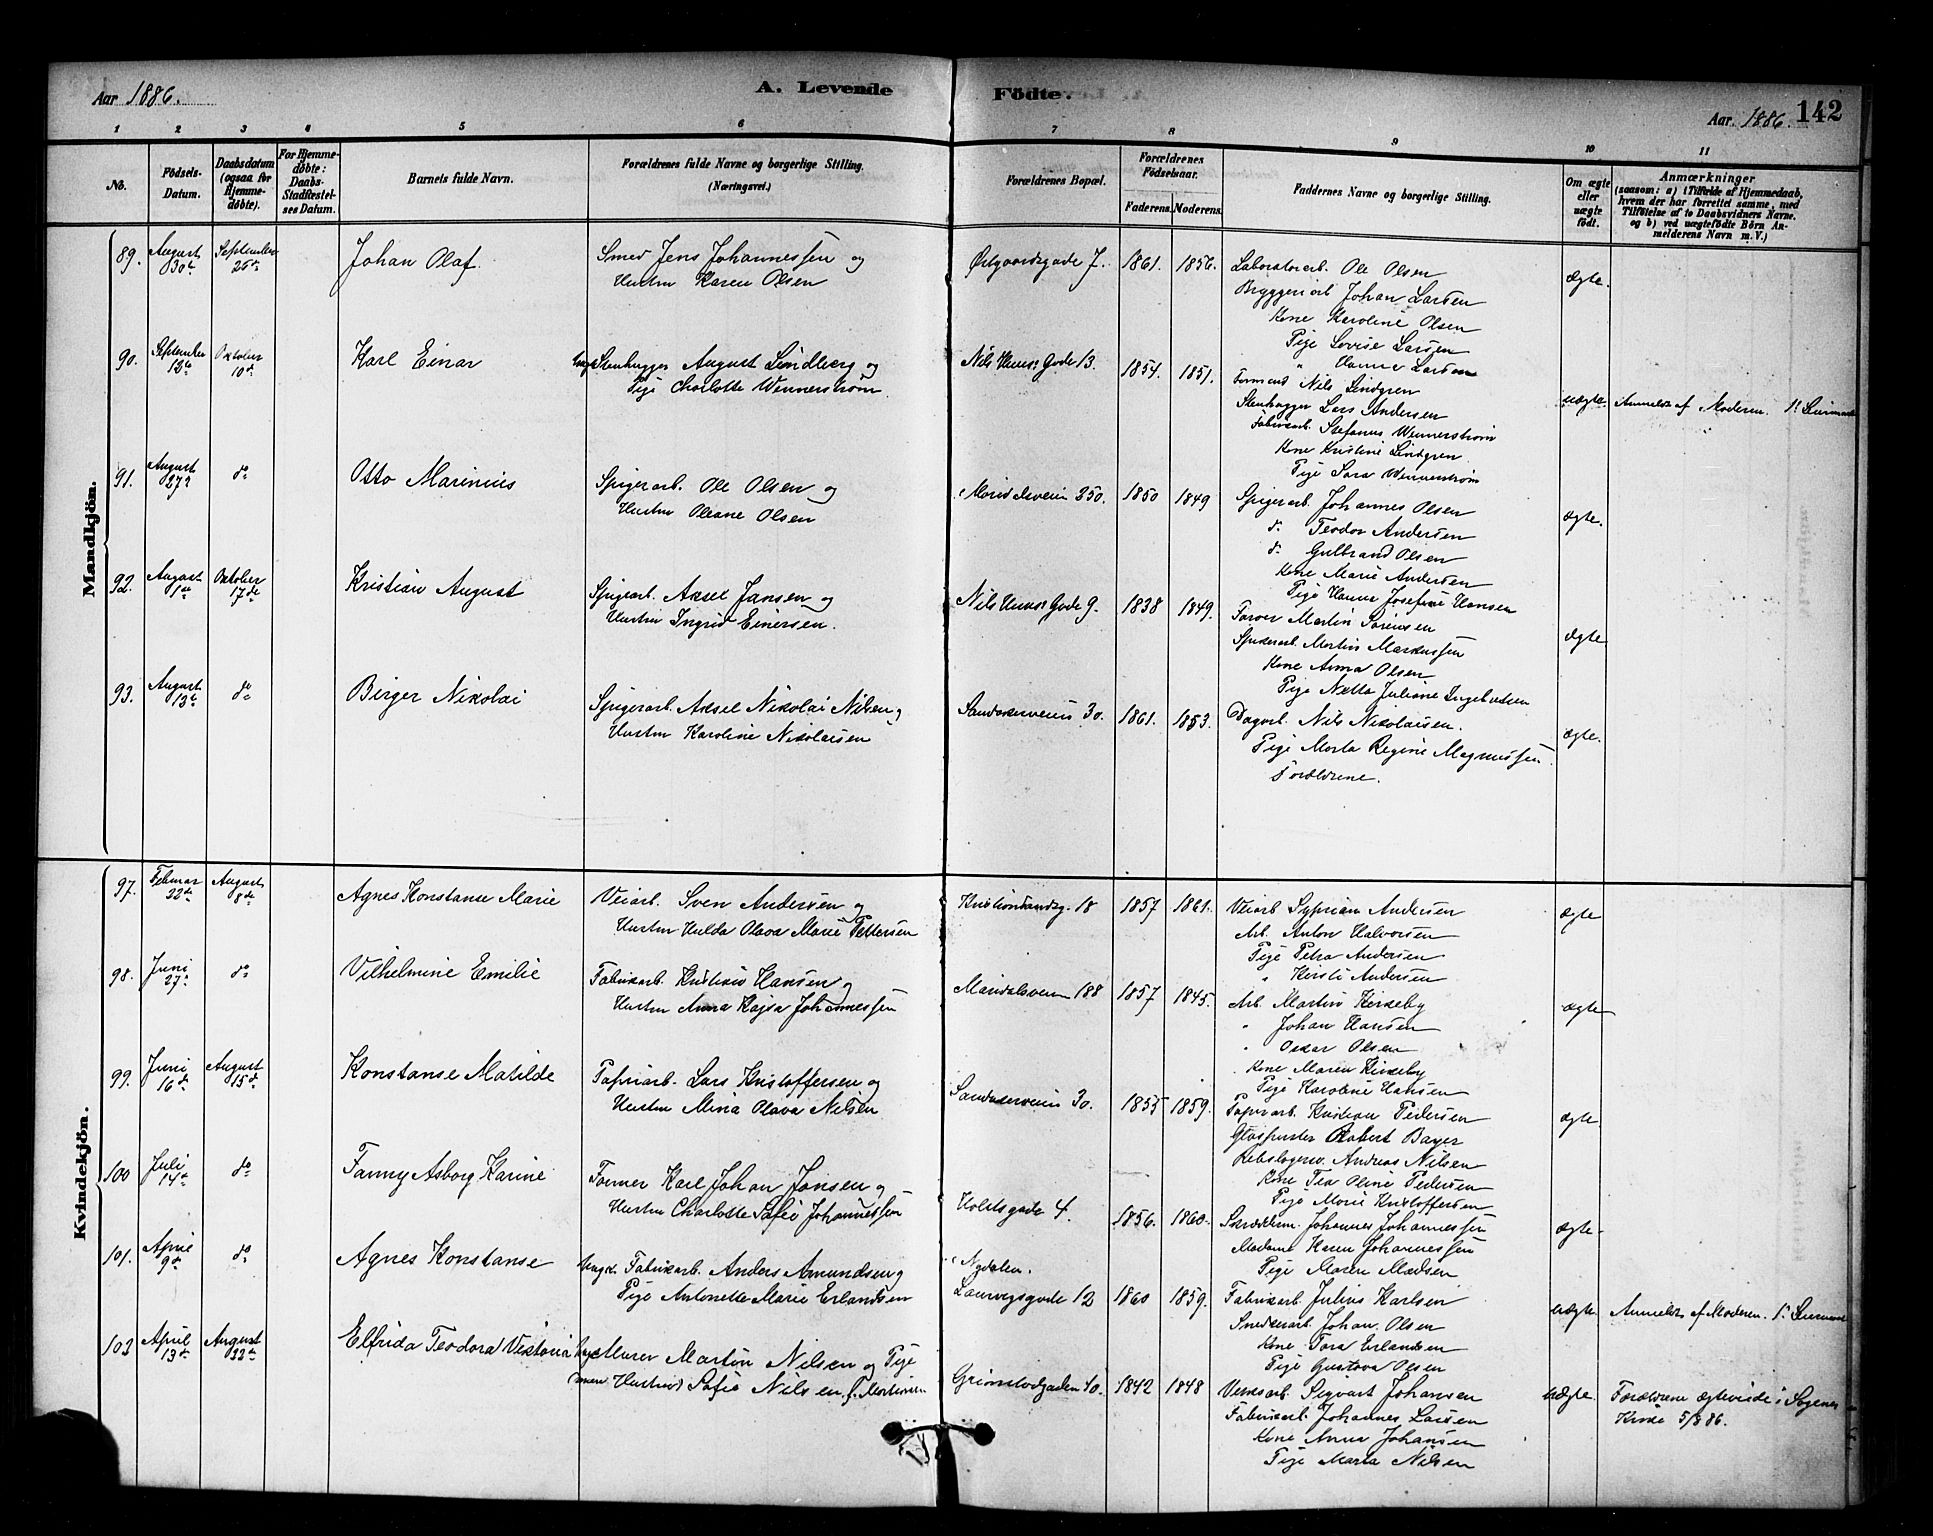 Aar 1886.
A. Levende
Födte.
Aar. 1886.
142
1 2 3 4 5 6 7 8 9 10 11
No.
Födsels-Datum.
Daabsdatum (ogsaa for Hjemme-döbte).
For Hjemme-döbte: Daabs-Stadfæstel-ses Datum.
Barnets fulde Navn.
Forældrenes fulde Navne og borgerlige Stilling.
(Næringsvei.)
Forældrenes Bopæl.
Forældrenes Födselsaar.
Faderens. Moderens.
Faddernes Navne og borgerlige Stilling.
Om ægte eller uægte födt.
Anmærkninger
(saasom: a) i Tilfælde af Hjemmedaab, hvem der har forrettet samme, med Tilföielse af to Daabsvidners Navne, og b) ved uægtefödte Börn An-melderens Navn m. V.)
Mandkjön.
89. August 30te September 26de Johan Olaf. Smed Jens Johannessen og
Hustru Karen Olsen
Østgaardsgade 7. 1861. 1856. Laboratorarb. Ole Olsen
Bryggeriarb Johan Larsen
Kone Karoline Olsen
Pige Lovise Larsen
" Hanna Larsen
ægte.
90. September 13de Oktober 10de Karl Einar Stenhugger August Lindberg og
Pige Charlotte Wennerstrøm
Nils Huus' Gade 13. 1854. 1851. Formand Nils Lindgren
Stenhugger Lars Andersen
Fabrikarb. Stefanus Wennerstrøm
Kone Kristine Lindgren
Pige Sara Wennerstrøm
uægte. Anmeldt af Moderen. 1ste Leiermaal
91. August 27de do Otto Marinius Spigerarb. Ole Olsen og
Hustru Oleane Olsen
Maridalsveien 250. 1850 1849 Spigerarb. Johannes Olsen
do Teodor Andersen
do Gulbrand Olsen
Kone Marie Andersen
Pige Hanna Josefine Hansen
ægte.
92. August 1ste Oktober 17de Kristian August Spigerarb. Aksel Jansen og
Hustru Ingrid Einersen.
Nils Huus' Gade 9. 1838 1849. Farver Martin Sørensen
Spikerarb. Martin Markussen
Kone Anna Olsen
Pige Netta Juliane Ingebretsen
ægte
93. August 13de do Birger Nikolai Spigerarb. Aksel Nikolai Nilsen og
Hustru Karoline Nikolaisen
Sandakerveien 30. 1861. 1853. Dagarb. Nils Nikolaisen.
Pige Marta Regine Magnussen
Forældrene.
ægte.
Kvindekjön.
97. Februar 22de August 8de Agnes Konstanse Marie Veiarb. Sven Andersen og
Hustru Hulda Olava Marie Pettersen
Kristiansandsg. 18 1857 1861. Veiarb Syprian Andersen
Arb. Anton Halvorsen
Pige Petra Andersen
" Kirsti Andersen
ægte
98. Juni 27de do Vilhelmine Emilie Fabrikarb. Kristian Hansen og
Hustru Anna Kajsa Johannessen
Maridalsveien 188 1857 1845. Arb. Martin Kirkeby
" Johan Hansen
" Oskar Olsen
Kone Maren Kirkeby
Pige Karoline Hansen
ægte
99. Juni 16de August 15de Konstanse Matilde Papirarb. Lars Kristoffersen og
Hustru Mina Olava Nilsen
Sandakerveien 30. 1855 1859. Papirarb. Kristian Pedersen
Glaspuster Robert Bayer
Rebslagersv. Andreas Nilsen
Kone Tea Oline Pedersen
Pige Marie Kristoffersen
ægte
100 Juli 14de do Fanny Asborg Karine Former Karl Johan Jansen og
Hustru Charlotte Sofie Johannessen
Holstsgade 4. 1856. 1860. Skræddersv. Johannes Johannessen
Madame Karen Johannessen
Pige Maren Madsen
ægte.
101. April 9de do Agnes Konstanse Ungk. Fabrikarb. Anders Amundsen og
Pige Antonette Marie Erlandsen
Nydalen.
Laurvigsgade 12 1860 1859. Fabrikarb. Julius Karlsen
Snedkerarb. Johan Olsen
Kone Tora Erlandsen
Pige Gustava Olsen
uægte Anmeldt af Moderen. 1ste Leiermaal
103 April 13de August 22de Elfrida Teodora Viktoria Murer Martin Nilsen og Pige
Hustru Sofie Nilsen f. Mortensen
Grimstadgaden 10. 1842 1848 Verksarb. Sigvart Johansen
Fabrikarb. Johannes Larsen
Kone Anna Johansen
Pige Maria Nilsen
uægte. Forældrene ægteviede i Sagenes
Kirke 5/8 86.